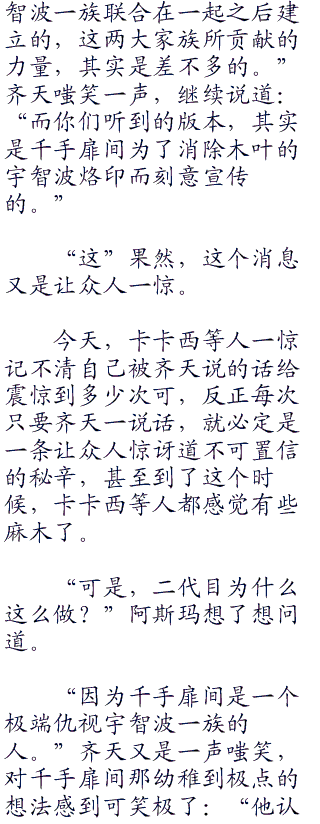 智波一族联合在一起之后建
立的，这两大家族所贡献的
力量，其实是差不多的。”
齐天嗤笑一声，继续说道：
“而你们听到的版本，其实
是千手扉间为了消除木叶的
宇智波烙印而刻意宣传
的。”
“这”果然，这个消息
又是让众人一惊。
今天，卡卡西等人一惊
记不清自己被齐天说的话给
震惊到多少次可，反正每次
只要齐天一说话，就必定是
一条让众人惊讶道不可置信
的秘辛，甚至到了这个时
候，卡卡西等人都感觉有些
麻木了。
“可是，二代目为什么
这么做？”阿斯玛想了想问
道。
“因为千手扉间是一个
极端仇视宇智波一族的
人。”齐天又是一声嗤笑，
对千手扉间那幼稚到极点的
想法感到可笑极了：“他认